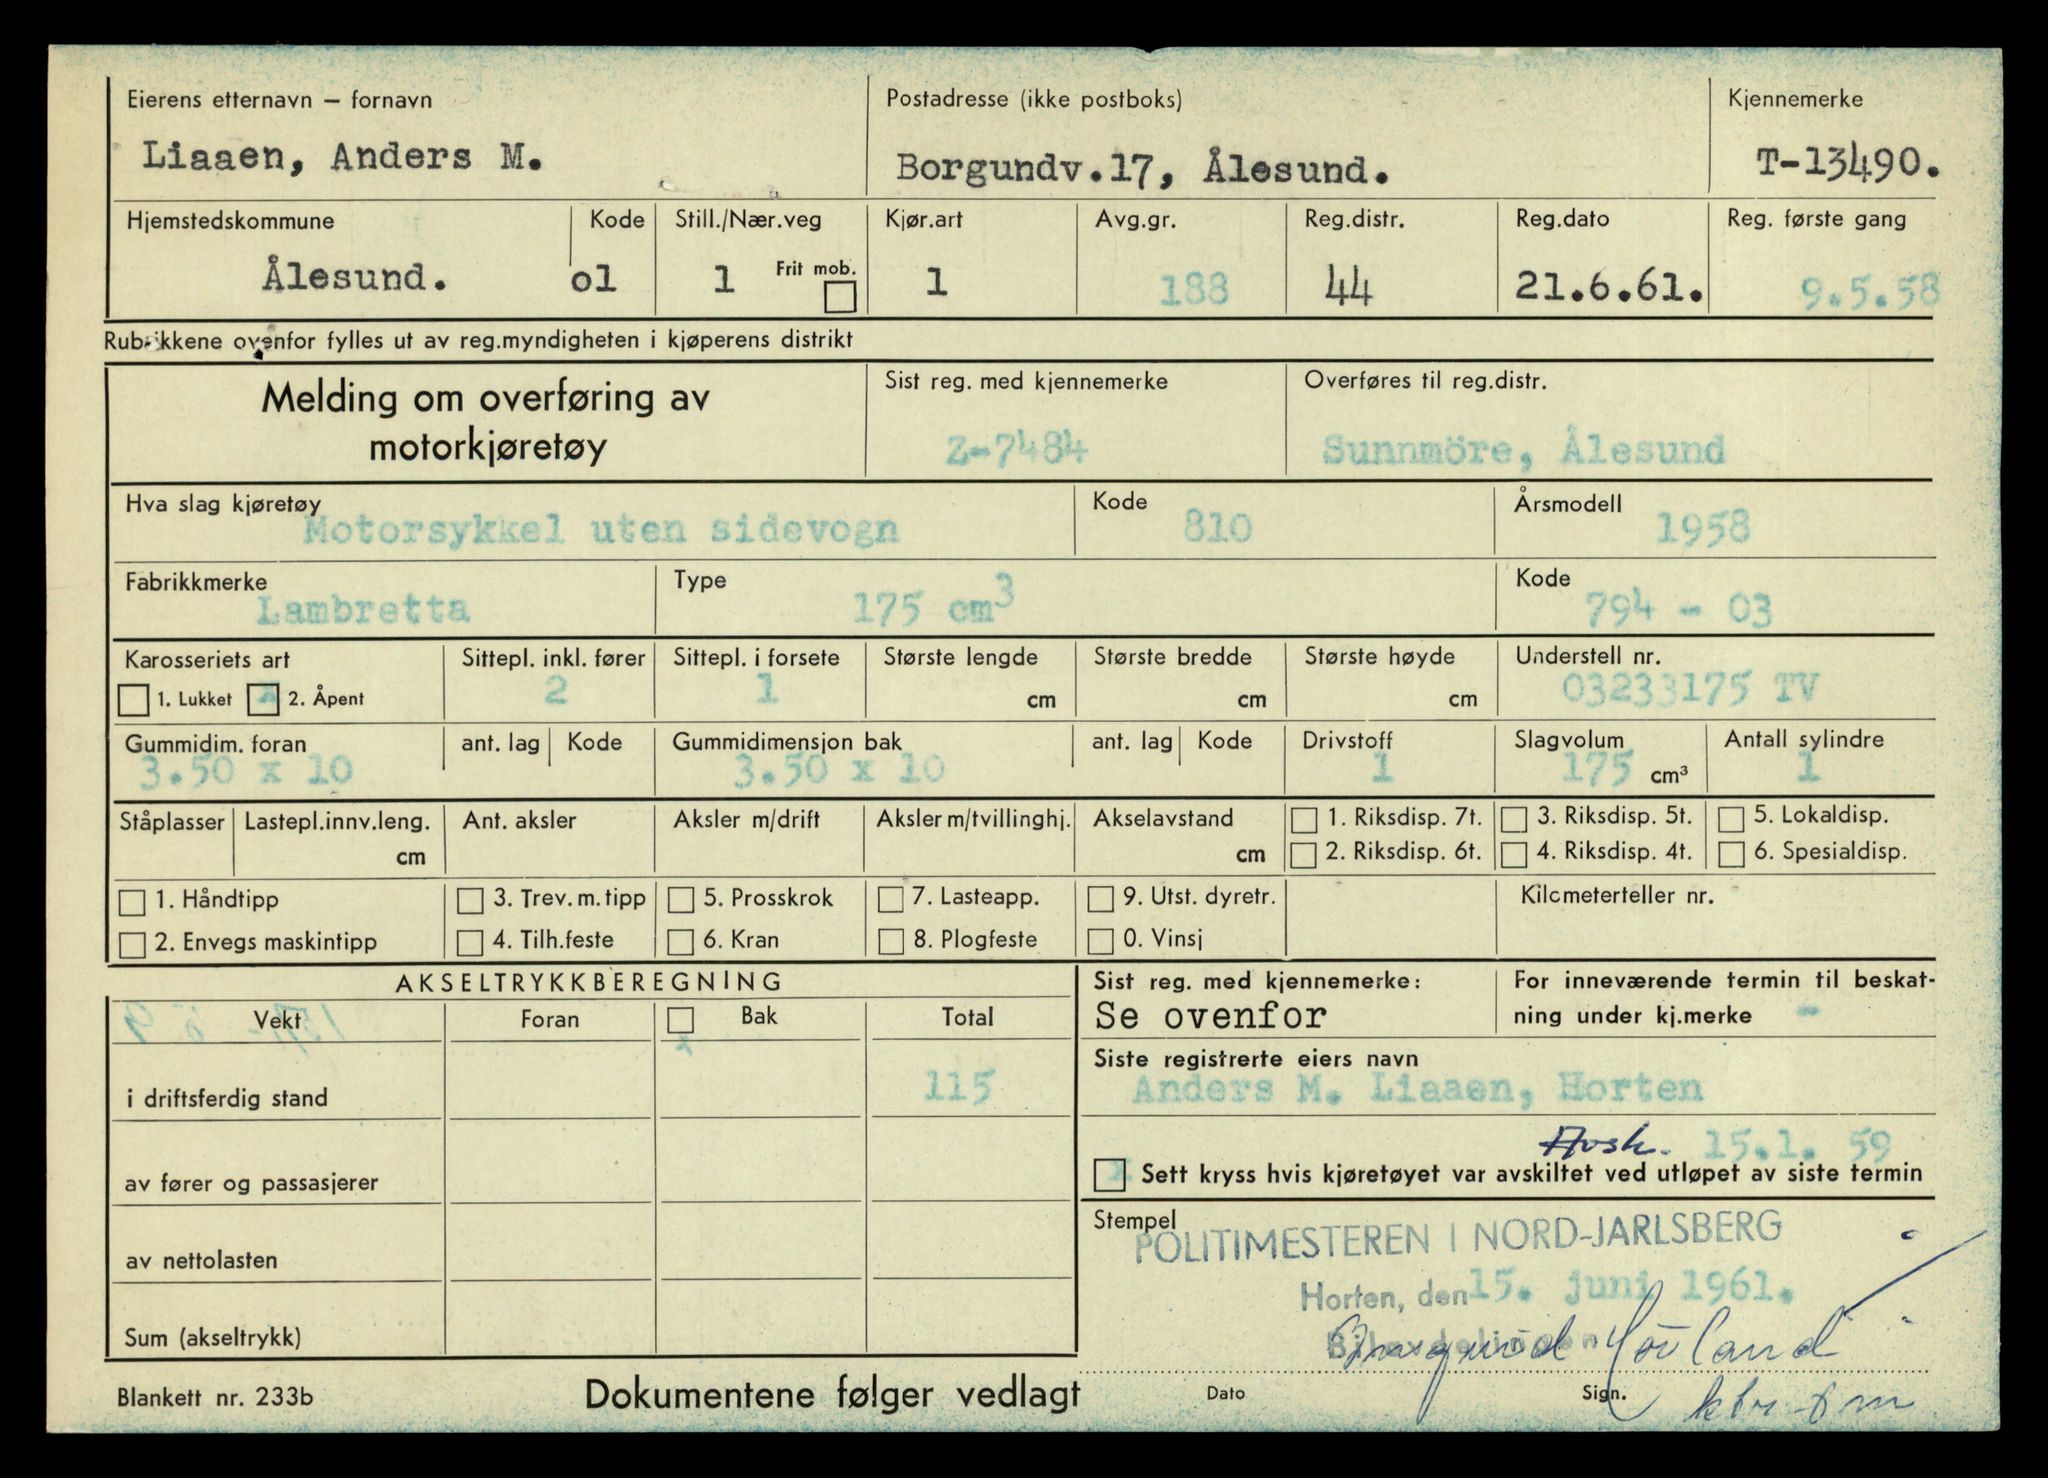 Eierens etternavn – fornavn
Liaaen, Anders M.
Postadresse (ikke postboks)
Borgundv.17, Ålesund.
Kjennemerke
T-13490.
Hjemstedskommune
Ålesund.
Kode
o1
Still./Nær.veg
1
Frit mob.
Kjør.art
1
Avg.gr.
188
Reg.distr.
44
Reg.dato
21.6.61.
Reg. første gang
9.5.58
Rubrikkene ovenfor fylles ut av reg.myndigheten i kjøperens distrikt
Melding om overføring av
motorkjøretøy
Sist reg. med kjennemerke
Z-7484
Overføres til reg.distr.
Sunnmöre, Ålesund
Hva slag kjøretøy
Motorsykkel uten sidevogn
Kode
810
Årsmodell
1958
Fabrikkmerke
Lambretta
Type
175 cm3
Kode
794 - 03
Karosseriets art
1. Lukket x 2. Åpent
Sittepl. inkl. fører
2
Sittepl. i forsete
1
Største lengde
cm
Største bredde
cm
Største høyde
cm
Understell nr.
03233175 TV
Gummidim. foran
3.50 x 10
ant. lag Kode
Gummidimensjon bak
3.50 x 10
ant. lag Kode
Drivstoff
1
Slagvolum
175 cm³
Antall sylindre
1
Ståplasser
Lastepl.innv.leng.
cm
Ant. aksler
Aksler m/drift
Aksler m/tvillinghj.
Akselavstand
cm
1. Riksdisp. 7t.
2. Riksdisp. 6t.
3. Riksdisp. 5t.
4. Riksdisp. 4t.
5. Lokaldisp.
6. Spesialdisp.
1. Håndtipp
2. Envegs maskintipp
3. Trev. m. tipp
4. Tilh.feste
5. Prosskrok
6. Kran
7. Lasteapp.
8. Plogfeste
9. Utst. dyretr.
0. Vinsj
Kilometerteller nr.
AKSELTRYKKBEREGNING
Vekt Foran Bak Total
x
i driftsferdig stand 115
av fører og passasjerer
av nettolasten
Sum (akseltrykk)
Sist reg. med kjennemerke:
Se ovenfor
For inneværende termin til beskat-
ning under kj.merke -
Siste registrerte eiers navn
Anders M. Liaaen, Horten
Avsk. 15.1. 59
x Sett kryss hvis kjøretøyet var avskiltet ved utløpet av siste termin
Stempel
POLITIMESTEREN I NORD-JARLSBERG
Horten, den 15. juni 1961.
Bilavdelingen
Dato Sign.
Blankett nr. 233b
Dokumentene følger vedlagt